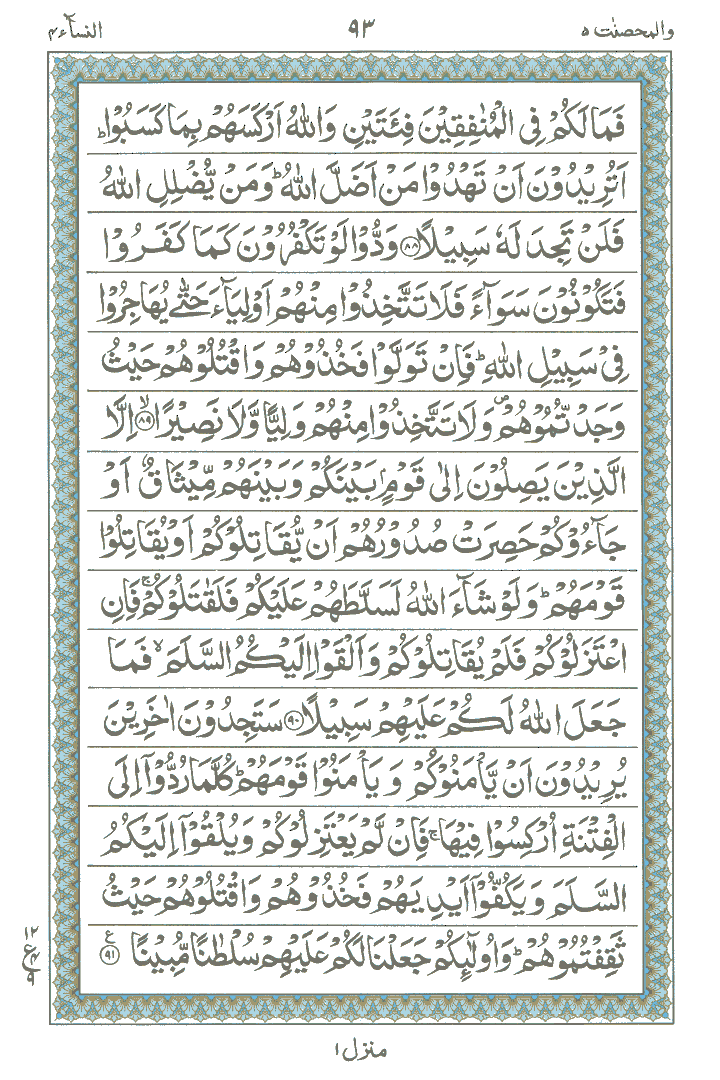 والمحصنت ۵ ۹۳ النسآء ۴
فَمَا لَكُمْ فِى الْمُنٰفِقِيْنَ فِئَتَيْنِ وَاللّٰهُ اَرْكَسَهُمْ بِمَا كَسَبُوْا ؕ
اَتُرِيْدُوْنَ اَنْ تَهْدُوْا مَنْ اَضَلَّ اللّٰهُ ؕ وَمَنْ يُّضْلِلِ اللّٰهُ
فَلَنْ تَجِدَ لَهٗ سَبِيْلًا ﴿۸۸﴾ وَدُّوْا لَوْ تَكْفُرُوْنَ كَمَا كَفَرُوْا
فَتَكُوْنُوْنَ سَوَآءً فَلَا تَتَّخِذُوْا مِنْهُمْ اَوْلِيَآءَ حَتّٰى يُهَاجِرُوْا
فِىْ سَبِيْلِ اللّٰهِ ؕ فَاِنْ تَوَلَّوْا فَخُذُوْهُمْ وَاقْتُلُوْهُمْ حَيْثُ
وَجَدْتُّمُوْهُمْ ۪ وَلَا تَتَّخِذُوْا مِنْهُمْ وَلِيًّا وَّلَا نَصِيْرًا ۙ﴿۸۹﴾ اِلَّا
الَّذِيْنَ يَصِلُوْنَ اِلٰى قَوْمٍۭ بَيْنَكُمْ وَبَيْنَهُمْ مِّيْثَاقٌ اَوْ
جَآءُوْكُمْ حَصِرَتْ صُدُوْرُهُمْ اَنْ يُّقَاتِلُوْكُمْ اَوْ يُقَاتِلُوْا
قَوْمَهُمْ ؕ وَلَوْ شَآءَ اللّٰهُ لَسَلَّطَهُمْ عَلَيْكُمْ فَلَقٰتَلُوْكُمْ ۚ فَاِنِ
اعْتَزَلُوْكُمْ فَلَمْ يُقَاتِلُوْكُمْ وَاَلْقَوْا اِلَيْكُمُ السَّلَمَ ۙ فَمَا
جَعَلَ اللّٰهُ لَكُمْ عَلَيْهِمْ سَبِيْلًا ﴿۹۰﴾ سَتَجِدُوْنَ اٰخَرِيْنَ
يُرِيْدُوْنَ اَنْ يَّاْمَنُوْكُمْ وَيَاْمَنُوْا قَوْمَهُمْ ؕ كُلَّمَا رُدُّوْۤا اِلَى
الْفِتْنَةِ اُرْكِسُوْا فِيْهَا ۚ فَاِنْ لَّمْ يَعْتَزِلُوْكُمْ وَيُلْقُوْۤا اِلَيْكُمُ
السَّلَمَ وَيَكُفُّوْۤا اَيْدِيَهُمْ فَخُذُوْهُمْ وَاقْتُلُوْهُمْ حَيْثُ
ثَقِفْتُمُوْهُمْ ؕ وَاُولٰٓئِكُمْ جَعَلْنَا لَكُمْ عَلَيْهِمْ سُلْطٰنًا مُّبِيْنًا ﴿۹۱﴾ ع
۱۲
ع ۴
۹
منزل ۱